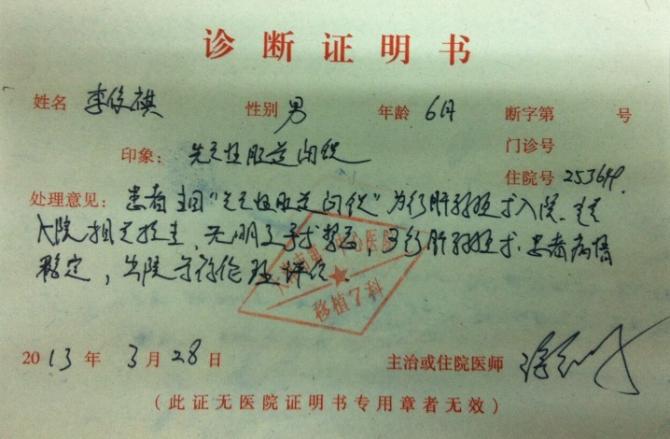 诊断证明书
姓名 李俊祺 性别 男 年龄 6月 断字第 号
门诊号
印象: 先天性胆道闭锁 住院号
处理意见: 患者主因"先天性胆道闭锁"为行肝移植术入院.
入院相关检查, 无明显手术禁忌, 行肝移植术. 患者病情
稳定, 出院
中心医院
移植7科
2013年 3月28日 主治或住院医师
(此证无医院证明书专用章者无效)